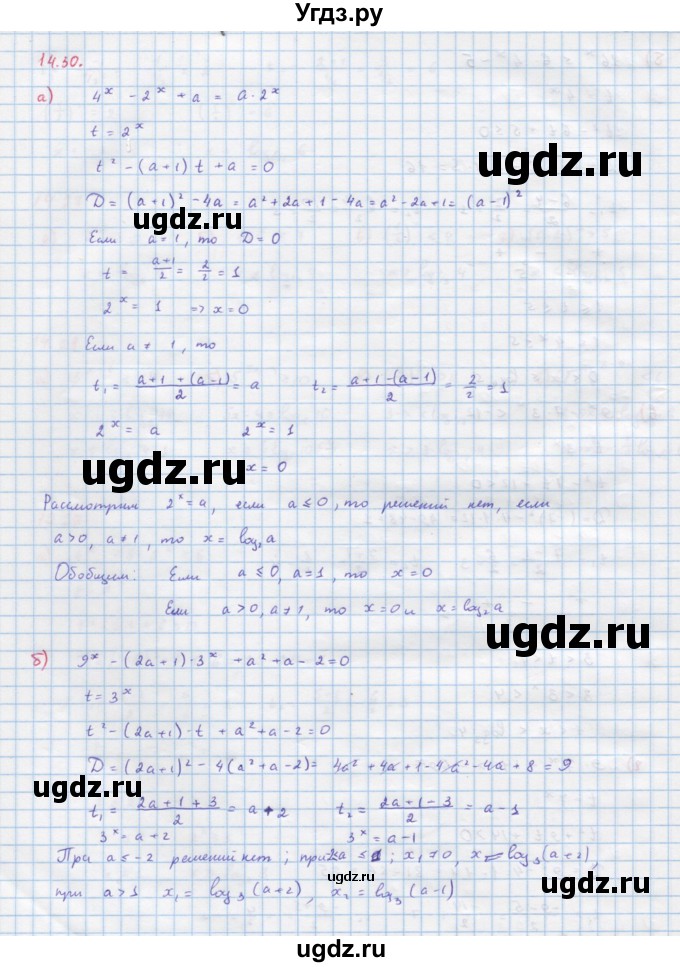 Угдз.ру
14.30.
а) 4^x - 2^x + a = a·2^x
t = 2^x
t² - (a+1) t + a = 0
D = (a+1)² - 4a = a² + 2a + 1 - 4a = a² - 2a + 1 = (a-1)²
Если a = 1, то D = 0
t = (a+1)/2 = 2/2 = 1
2^x = 1 => x = 0
Если a ≠ 1, то
t₁ = (a+1+(a-1))/2 = a t₂ = (a+1-(a-1))/2 = 2/2 = 1
2^x = a 2^x = 1
x = 0
Рассмотрим 2^x = a, если a ≤ 0, то решений нет, если
a > 0, a ≠ 1, то x = log₂ a
Обобщим: Если a ≤ 0, a = 1, то x = 0
Если a > 0, a ≠ 1, то x = 0 и x = log₂ a
б) 9^x - (2a+1)·3^x + a² + a - 2 = 0
t = 3^x
t² - (2a+1)·t + a² + a - 2 = 0
D = (2a+1)² - 4(a² + a - 2) = 4a² + 4a + 1 - 4a² - 4a + 8 = 9
t₁ = (2a+1+3)/2 = a + 2 t₂ = (2a+1-3)/2 = a - 1
3^x = a + 2 3^x = a - 1
При a ≤ -2 решений нет; при a ≤ 1; x = log₃ (a+2),
при a > 1 x₁ = log₃ (a+2), x₂ = log₃ (a-1)
ugdz.ru
ugdz.ru
ugdz.ru
ugdz.ru
ugdz.ru
ugdz.ru
ugdz.ru
ugdz.ru